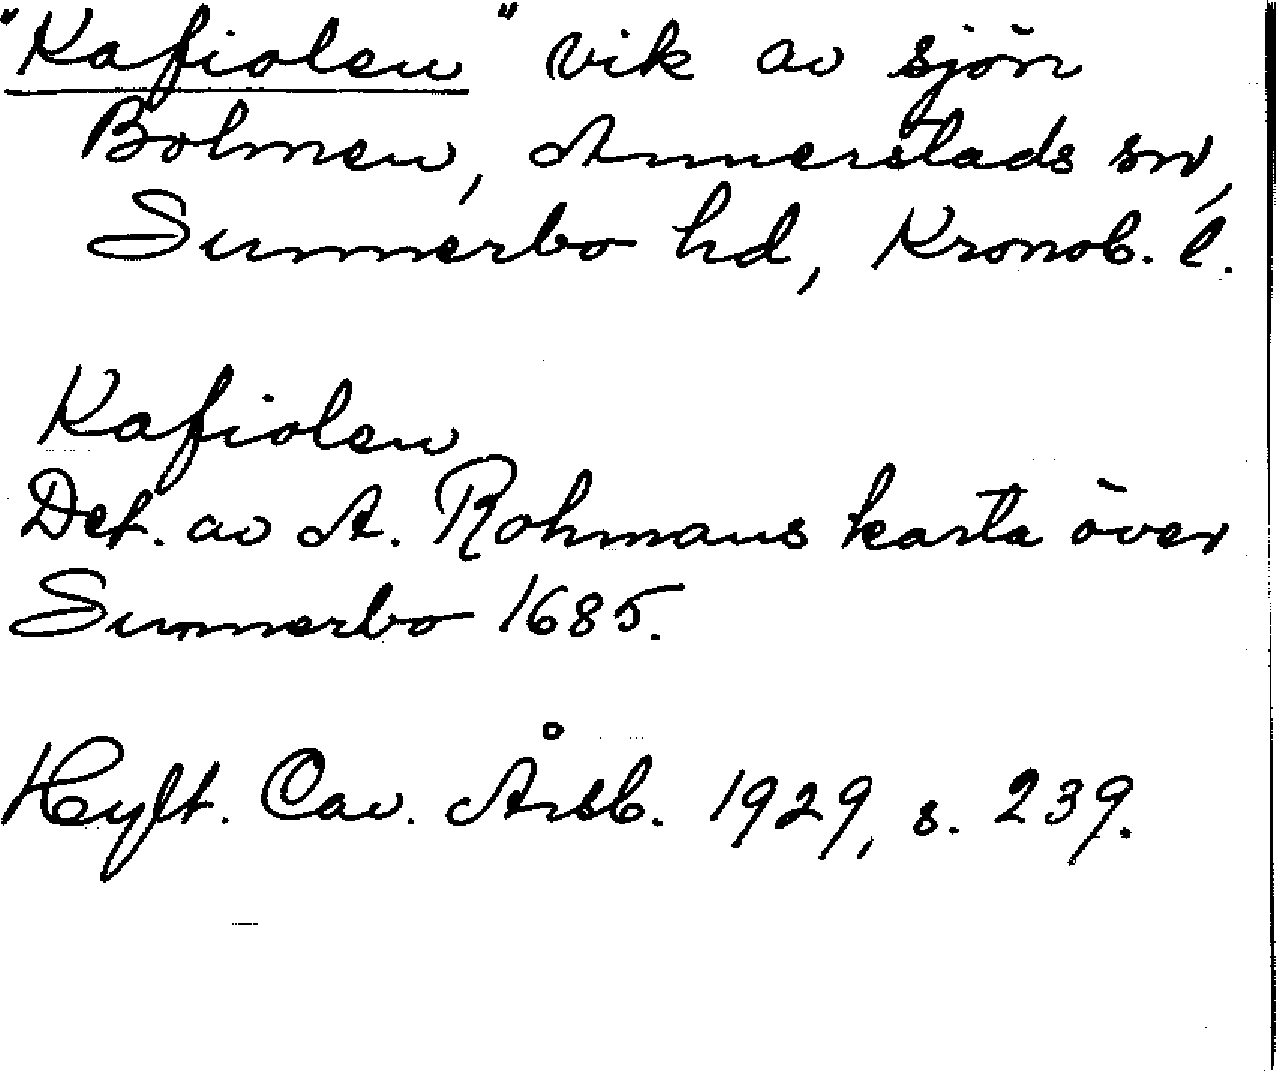 "Kafiolen" vik av sjön
Bolmen, Annerstads sn,
Sunnerbo hd, Kronob. l.
Kafiolen
Det. av A. Rohmans karta över
Sunnerbo 1685.
Hylt. Cav. Årsb. 1929, s. 239.